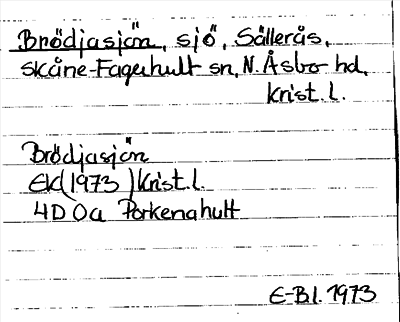 Brödjasjön, sjö, Sällerås,
Skåne-Fagerhult sn, N. Åsbo hd,
Krist. l.
Brödjasjön
EK (1973) Krist. l.
4D 0a Porkenahult
E-B.l. 1973